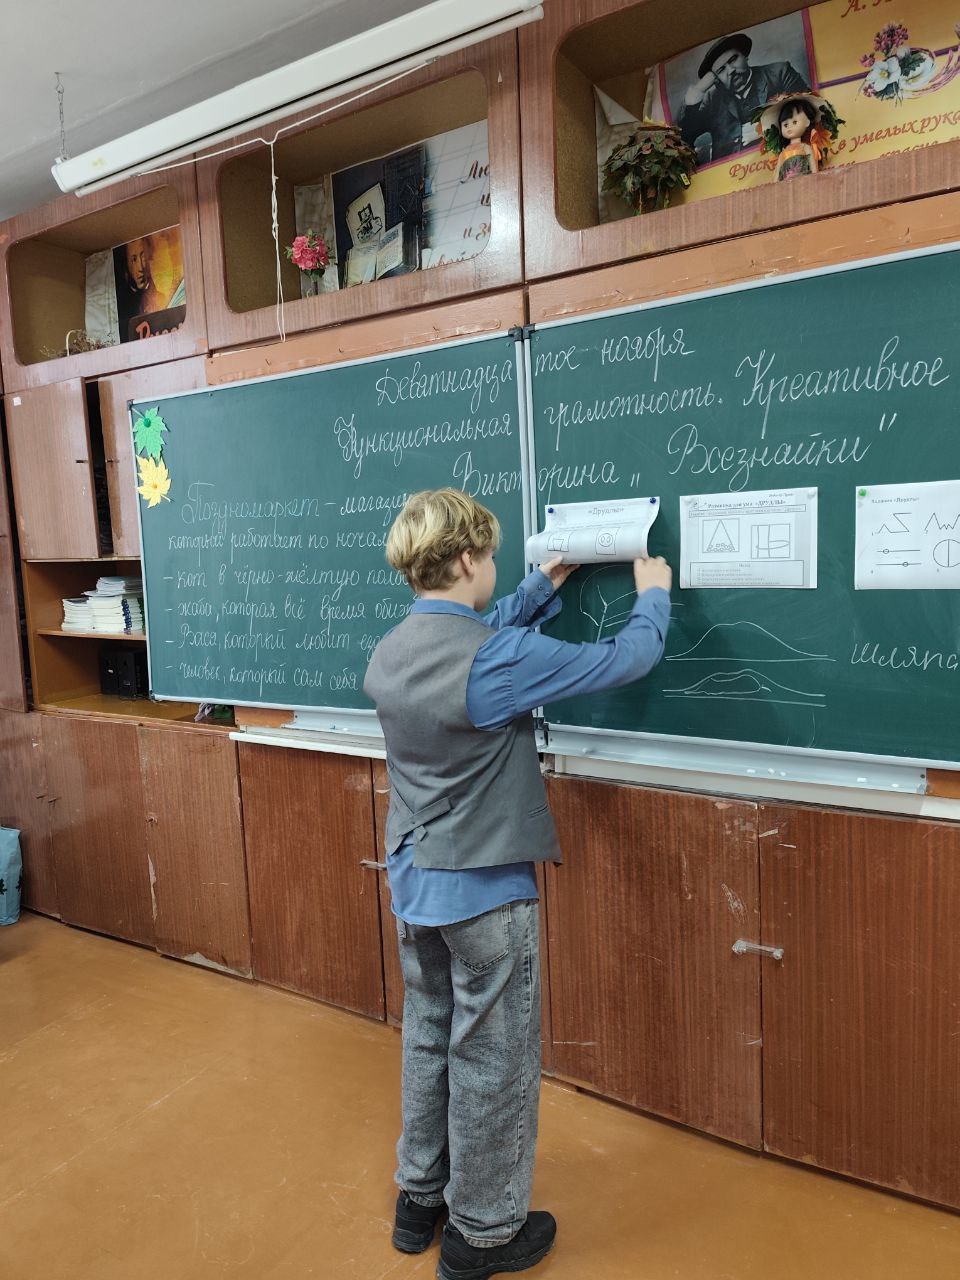 А.
Русск в умелых рука
красне
Лю
и з
Девятнадцатое ноября
Функциональная грамотность. Креативное
Викторина „Всезнайки"
Поздномаркет – магазин
который работает по ночам
- кот в чёрно-жёлтую поло
- жаба, которая всё время обиж
- Вася, который любит ез
- человек, который сам себя
«Друдлы»
Разминка для ума «ДРУДЛЫ»
Задание «Друдлы»
шляпа